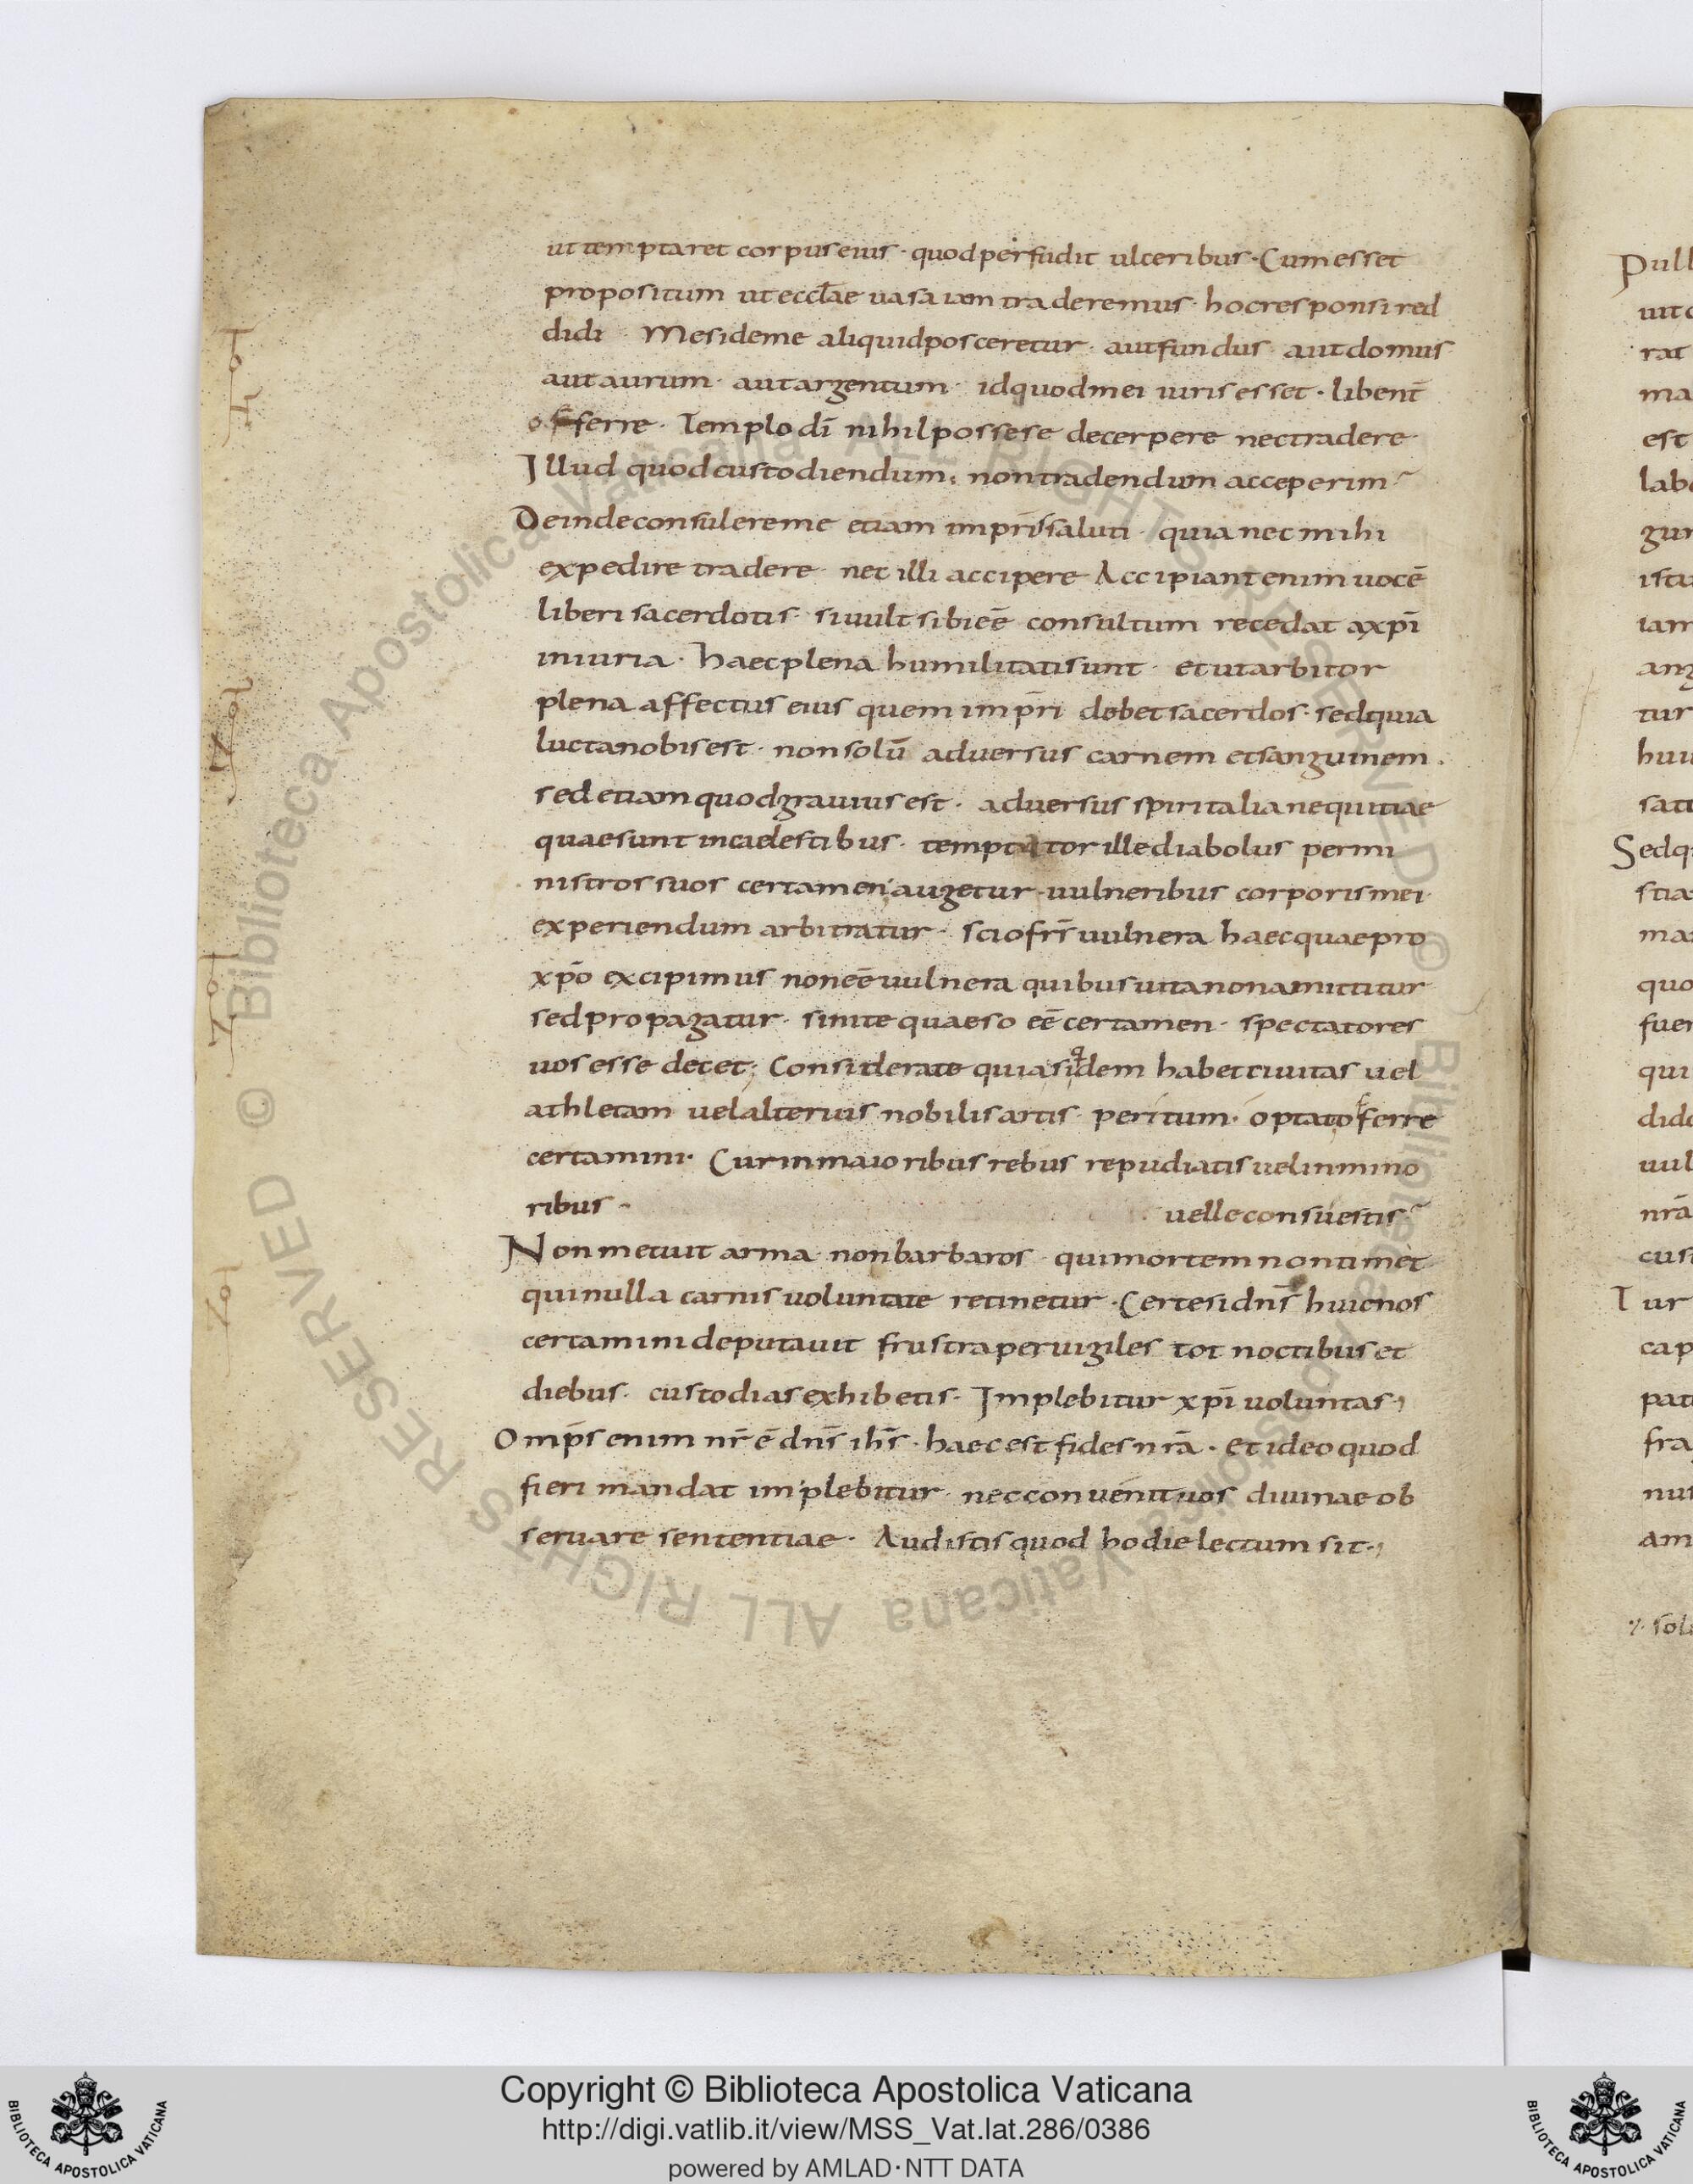 ut temptaret corpus eius · quod perfudit ulceribus · Cum esset
propositum ut eccl̄ae uasa iam traderemus · hoc responsi red
didi · Me si de me aliquid posceretur · aut fundus · aut domus
aut aurum · aut argentum · id quod mei iuris esset · libent̄
offerre · Templo dī nihil posse se decerpere nec tradere
Illud quod custodiendum, non tradendum acceperim
Deinde consulere me etiam imprīs saluti · quia nec mihi
expedire tradere · nec illi accipere Accipiant enim uocē
liberi sacerdotis · si uult sibi eē consultum recedat a xp̄i
iniuria · haec plena humilitati sunt · et ut arbitor
plena affectus eius quem imp̄ri debet sacerdos · sed quia
lucta nobis est · non solū aduersus carnem et sanguinem ·
sed etiam quod grauius est · aduersus spiritalia nequitiae
quae sunt in caelestibus · temptator ille diabolus per mi
nistros suos certamen augetur · uulneribus corporis mei
experiendum arbitratur · scio fr̄s uulnera haec quae pro
xp̄o excipimus non eē uulnera quibus uita non amittitur
sed propagatur · sinite quaeso eē certamen · spectatores
uos esse decet · Considerate quia siqdem habet ciuitas uel
athletam uel alterius nobilis artis peritum · optat offerre
certamini · Cur in maioribus rebus repudiatis uel in mino
ribus · uelle consuestis
Non metuit arma non barbaros · qui mortem non timet
qui nulla carnis uoluntate retinetur · Certe si dn̄s huic nos
certamini deputauit frustra peruigiles tot noctibus et
diebus · custodias exhibetis · Implebitur xp̄i uoluntas ·
Omp̄s enim nr̄ ē dn̄s ih̄s · haec est fides nr̄a · et ideo quod
fieri mandat implebitur · nec conuenit uos diuinae ob
seruare sententiae · Audistis quod hodie lectum sit ·
Pull
rat
ma
est
lab
gun
iam
ang
tur
huu
Sedq
stia
ma
quo
fuer
qui
uul
nr̄a
cus
Tur
cap
pat
fra
nus
am
© Biblioteca Apostolica Vaticana ALL RIGHTS RESERVED © Biblioteca Apostolica Vaticana ALL RIGHTS RESERVED
Copyright © Biblioteca Apostolica Vaticana
http://digi.vatlib.it/view/MSS_Vat.lat.286/0386
powered by AMLAD·NTT DATA
BIBLIOTECA APOSTOLICA VATICANA
BIBLIOTECA APOSTOLICA VATICANA